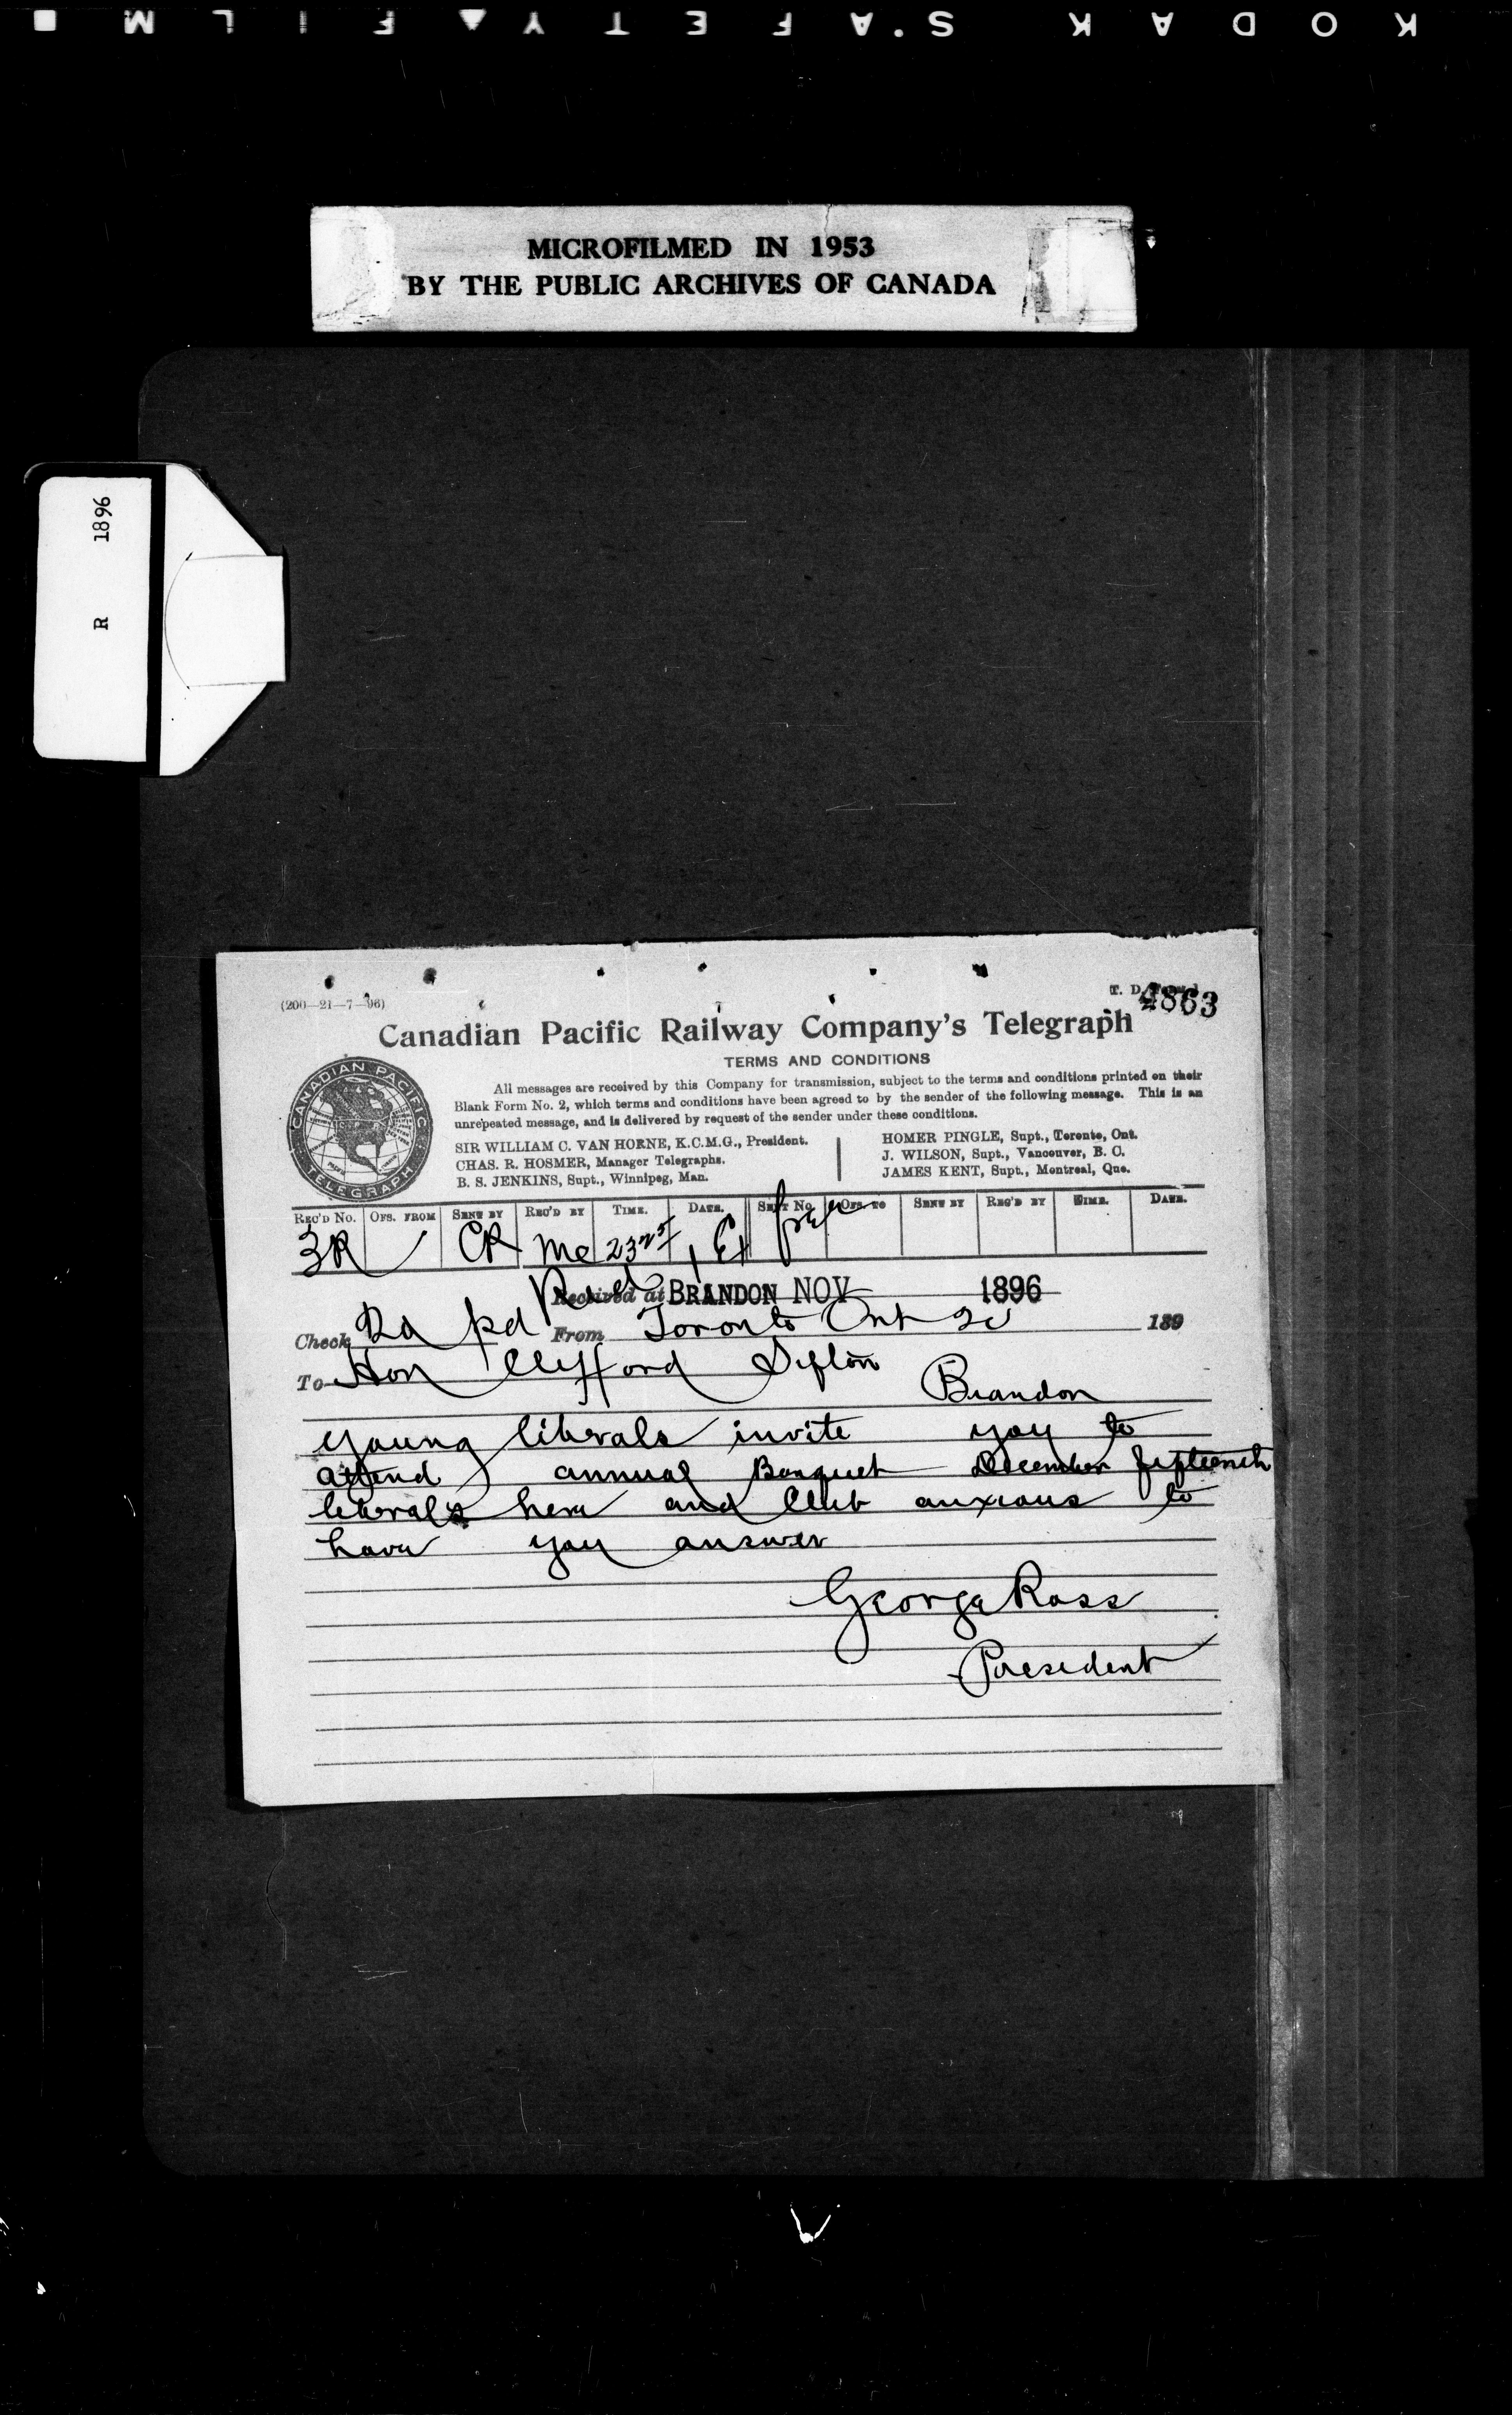 KODAK SAFETY FILM
MICROFILMED IN 1953
BY THE PUBLIC ARCHIVES OF CANADA
R 1896
(200—21—7—96)
T. D.
4863
Canadian Pacific Railway Company's Telegraph
TERMS AND CONDITIONS
CANADIAN PACIFIC TELEGRAPH
All messages are received by this Company for transmission, subject to the terms and conditions printed on their
Blank Form No. 2, which terms and conditions have been agreed to by the sender of the following message. This is an
unrepeated message, and is delivered by request of the sender under these conditions.
SIR WILLIAM C. VAN HORNE, K.C.M.G., President.
CHAS. R. HOSMER, Manager Telegraphs.
B. S. JENKINS, Supt., Winnipeg, Man.
HOMER PINGLE, Supt., Toronto, Ont.
J. WILSON, Supt., Vancouver, B. C.
JAMES KENT, Supt., Montreal, Que.
REC'D No. OFS. FROM SENT BY REC'D BY TIME. DATE. SENT No. OFS TO SENT BY REC'D BY TIME. DATE.
3R CR Mc
Received at BRANDON NOV 1896
Check pd From Toronto Ont 189
To Hon Clifford Sifton
Brandon
Young liberals invite you to
attend annual Banquet December fifteenth
liberals here and Club anxious to
have you answer
George Ross
President